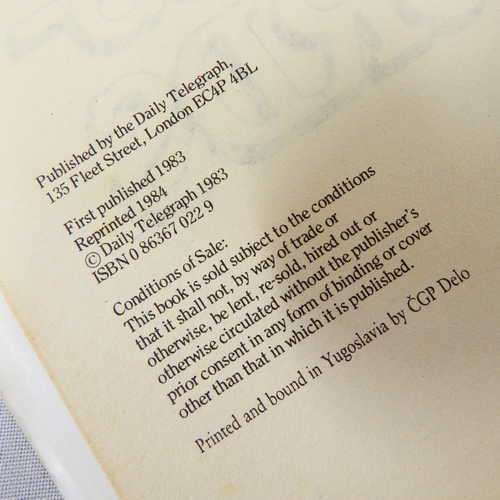 Published by the Daily Telegraph,
135 Fleet Street, London EC4P 4BL
First published 1983
Reprinted 1984
© Daily Telegraph 1983
ISBN 0 86367 022 9
Conditions of Sale:
This book is sold subject to the conditions
that it shall not, by way of trade or
otherwise, be lent, re-sold, hired out or
otherwise circulated without the publisher's
prior consent in any form of binding or cover
other than that in which it is published.
Printed and bound in Yugoslavia by ČGP Delo